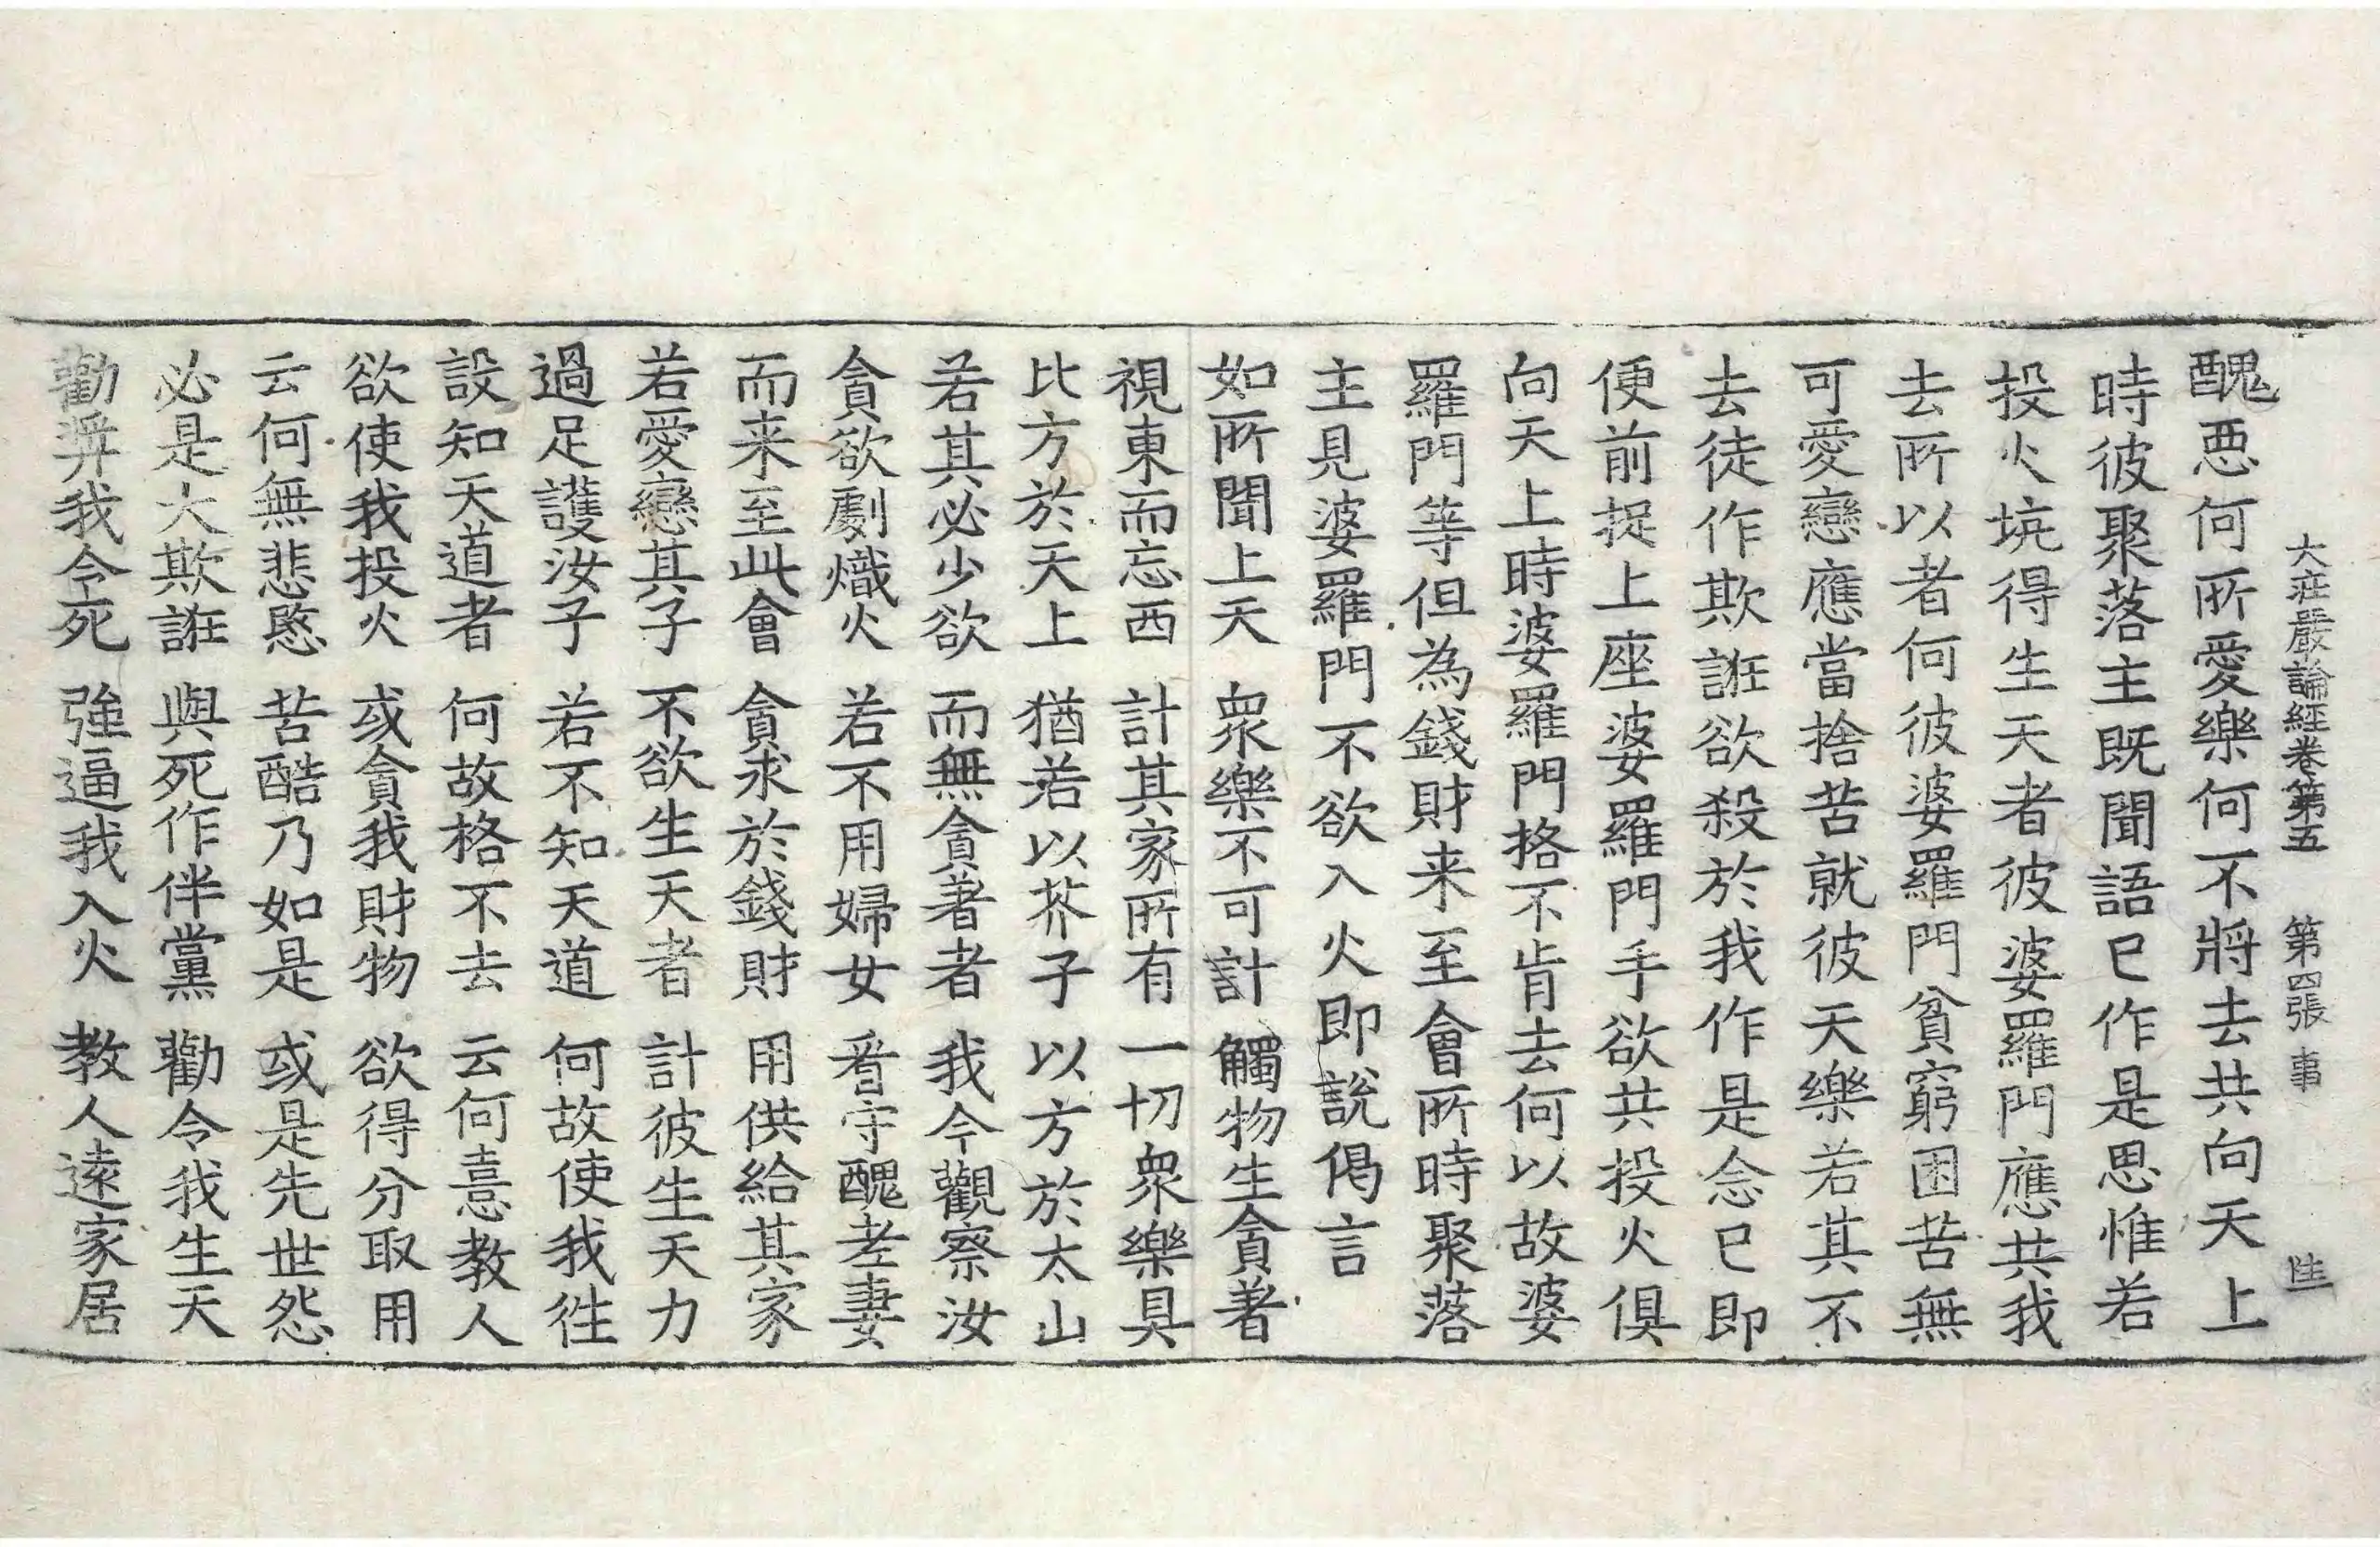 大莊嚴論經卷第五 第四張 事 陡
醜惡何所愛樂何不將去共向天上
時彼聚落主既聞語已作是思惟若
投火坑得生天者彼婆羅門應共我
去所以者何彼婆羅門貧窮困苦無
可愛戀應當捨苦就彼天樂若其不
去徒作欺誑欲殺於我作是念已即
便前捉上座婆羅門手欲共投火俱
向天上時婆羅門挌不肯去何以故婆
羅門等但為錢財来至會所時聚落
主見婆羅門不欲入火即說偈言
如所聞上天 衆樂不可計 觸物生貪著
視東而忘西 計其家所有 一切衆樂具
比方於天上 猶若以芥子 以方於太山
若其必少欲 而無貪著者 我今觀察汝
貪欲劇熾火 若不用婦女 看守醜老妻
而来至此會 貪求於錢財 用供給其家
若愛戀其子 不欲生天者 計彼生天力
過足護汝子 若不知天道 何故使我徃
設知天道者 何故格不去 云何憙教人
欲使我投火 或貪我財物 欲得分取用
云何無悲愍 苦酷乃如是 或是先世怨
必是大欺誑 與死作伴黨 勸令我生天
勸奨我令死 強逼我入火 教人遠家居